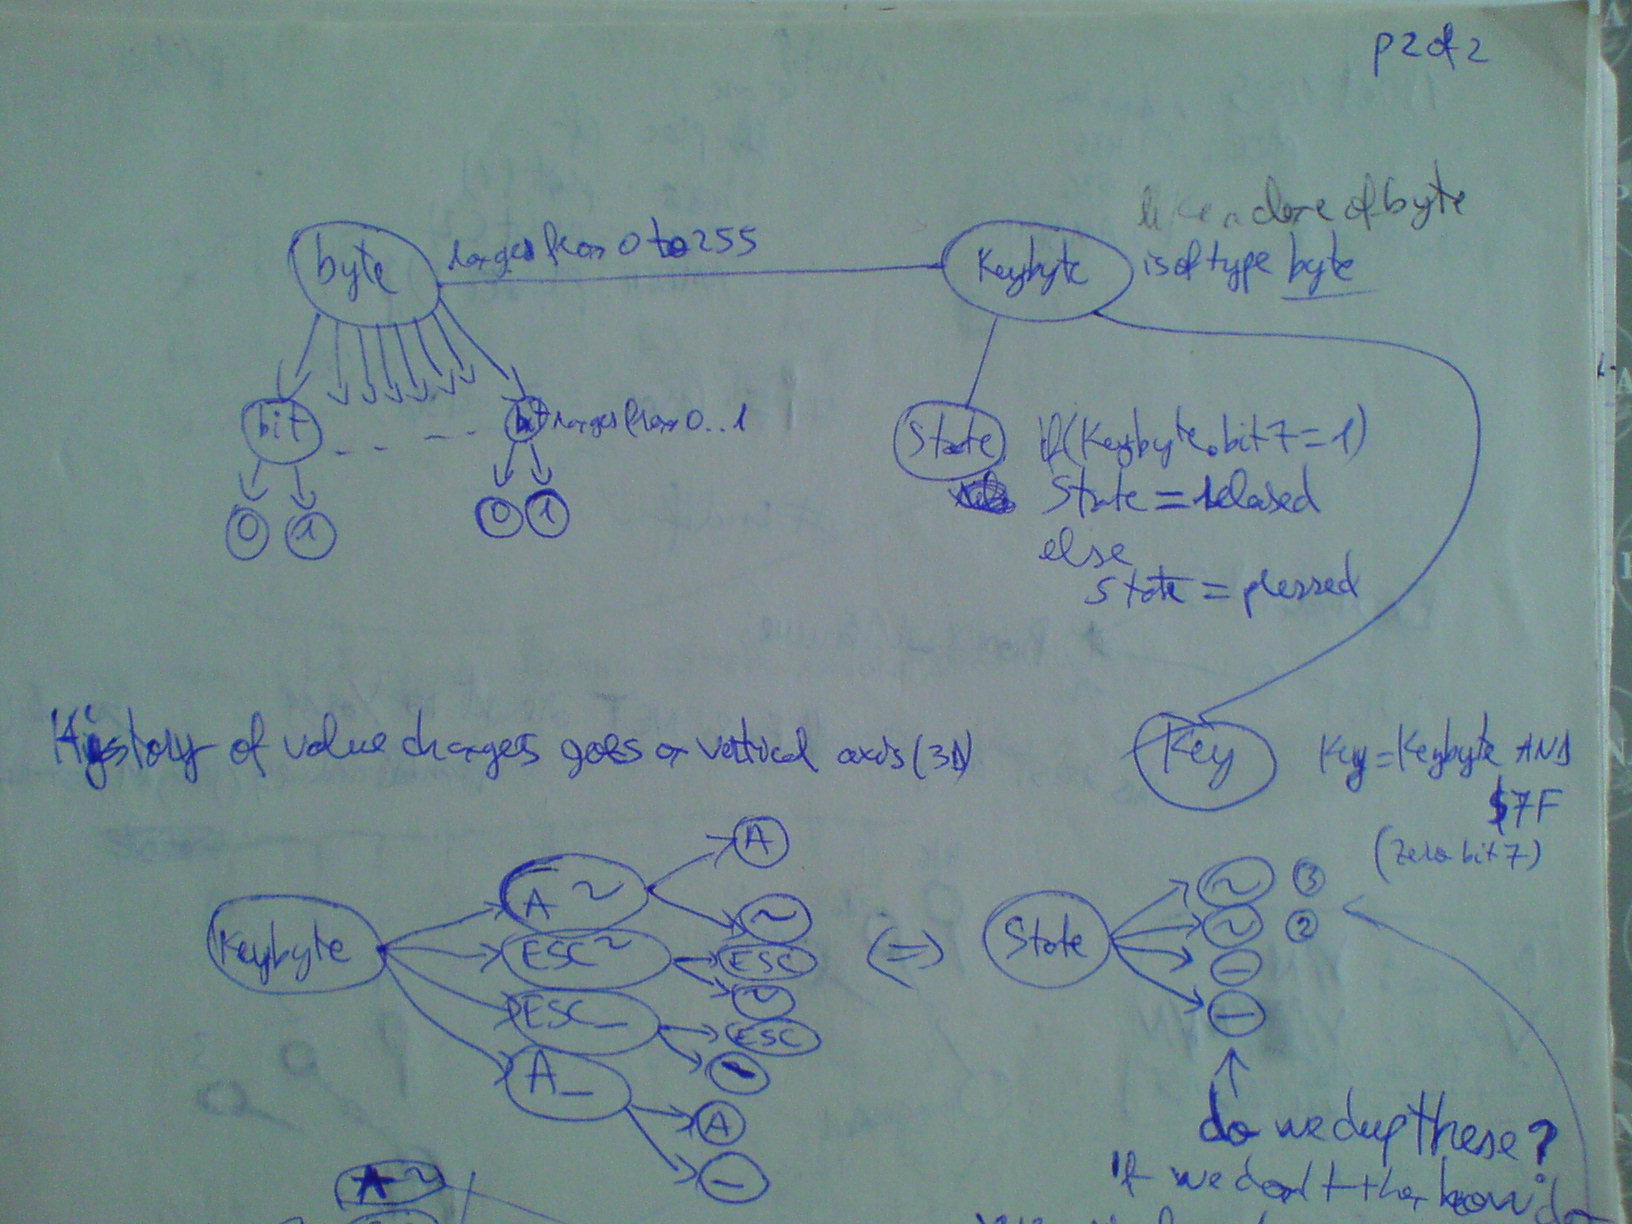 p 2 of 2
like a clone of byte
byte
ranges from 0 to 255
Keybyte
is of type byte
bit
bit
ranges from 0..1
0
1
0
1
State
if (Keybyte.bit7=1)
State = released
else
State = pressed
History of value changes goes on vertical axis (3D)
Key
Key = Keybyte AND
$7F
(Zero bit 7)
Keybyte
A ~
A
~
ESC ~
ESC
~
ESC _
ESC
A _
A
_
(=)
State
~ 3
~ 2
_
_
do we dup these?
If we don't then how'd
A ~